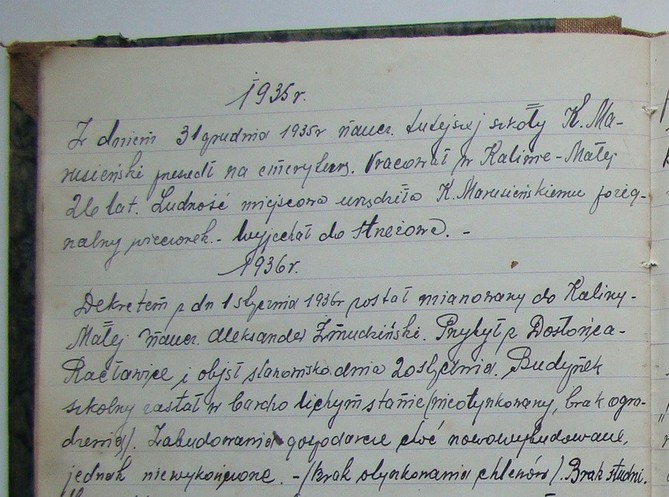 1935r.
Z dniem 31 grudnia 1935r naucz. tutejszej szkoły K. Ma-
rusieński przeszedł na emeryturę. Pracował w Kalinie-Małej
26 lat. Ludność miejscowa urządziła K. Marusieńskiemu pożeg-
nalny wieczorek. - Wyjechał do Strzeżowa. -
1936r.
Dekretem z dn 1 stycznia 1936r został mianowany do Kaliny-
Małej naucz. Aleksander Żmudziński. Przybył z Dosłońca-
Racławice i objął stanowisko dnia 20 stycznia. Budynek
szkolny zastał w bardzo lichym stanie (nieotynkowany, brak ogro-
dzenia). Zabudowania gospodarcze choć nowowybudowane,
jednak niewykończone. - (Brak otynkowania chlewów). Brak studni.